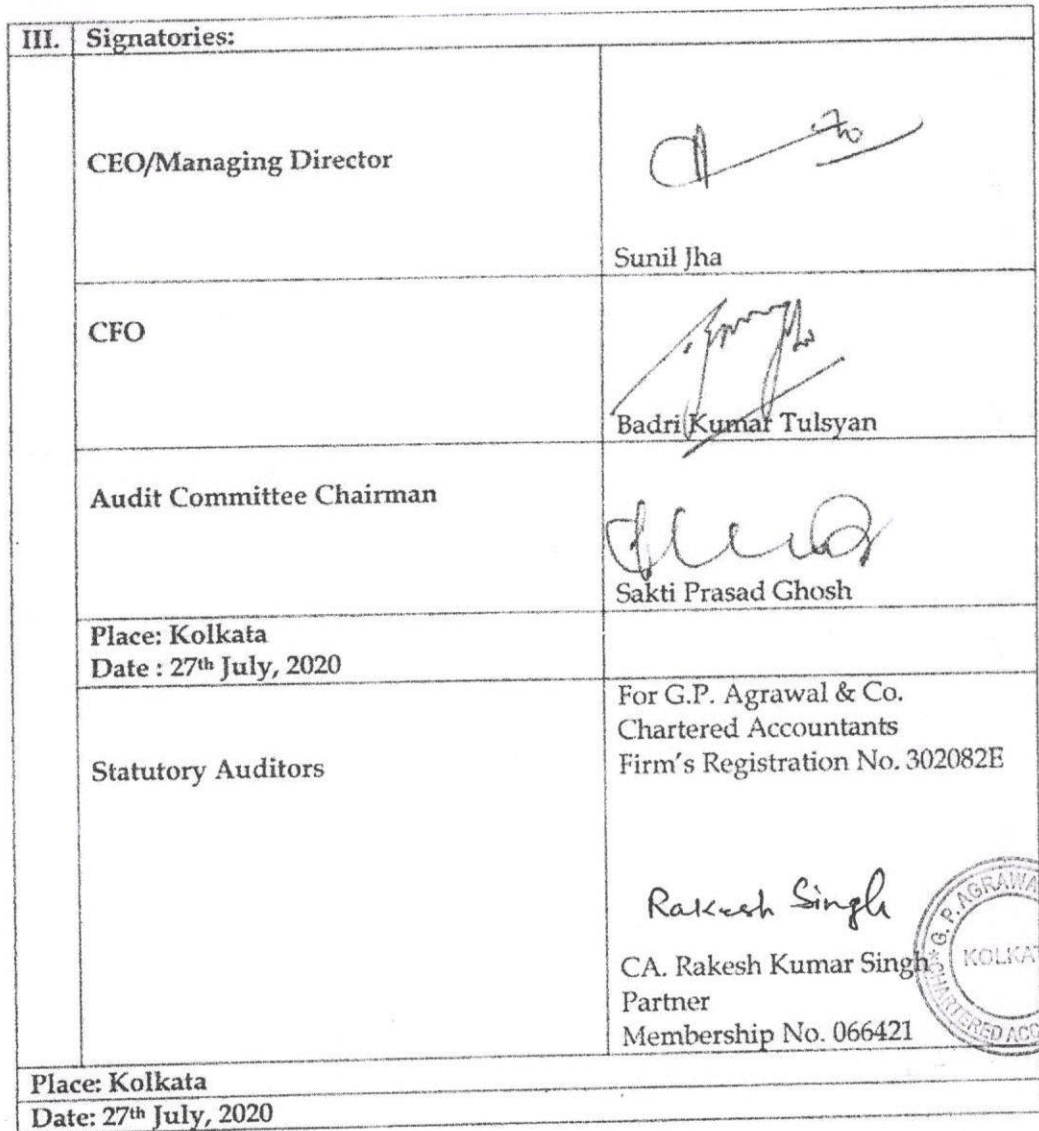 III. Signatories:
CEO/Managing Director
Sunil Jha
CFO
Badri Kumar Tulsyan
Audit Committee Chairman
Sakti Prasad Ghosh
Place: Kolkata
Date : 27th July, 2020
Statutory Auditors
For G.P. Agrawal & Co.
Chartered Accountants
Firm's Registration No. 302082E
Rakesh Singh
CA. Rakesh Kumar Singh
Partner
Membership No. 066421
G. P. AGRAWA
KOLKAT
CHARTERED ACCO
Place: Kolkata
Date: 27th July, 2020